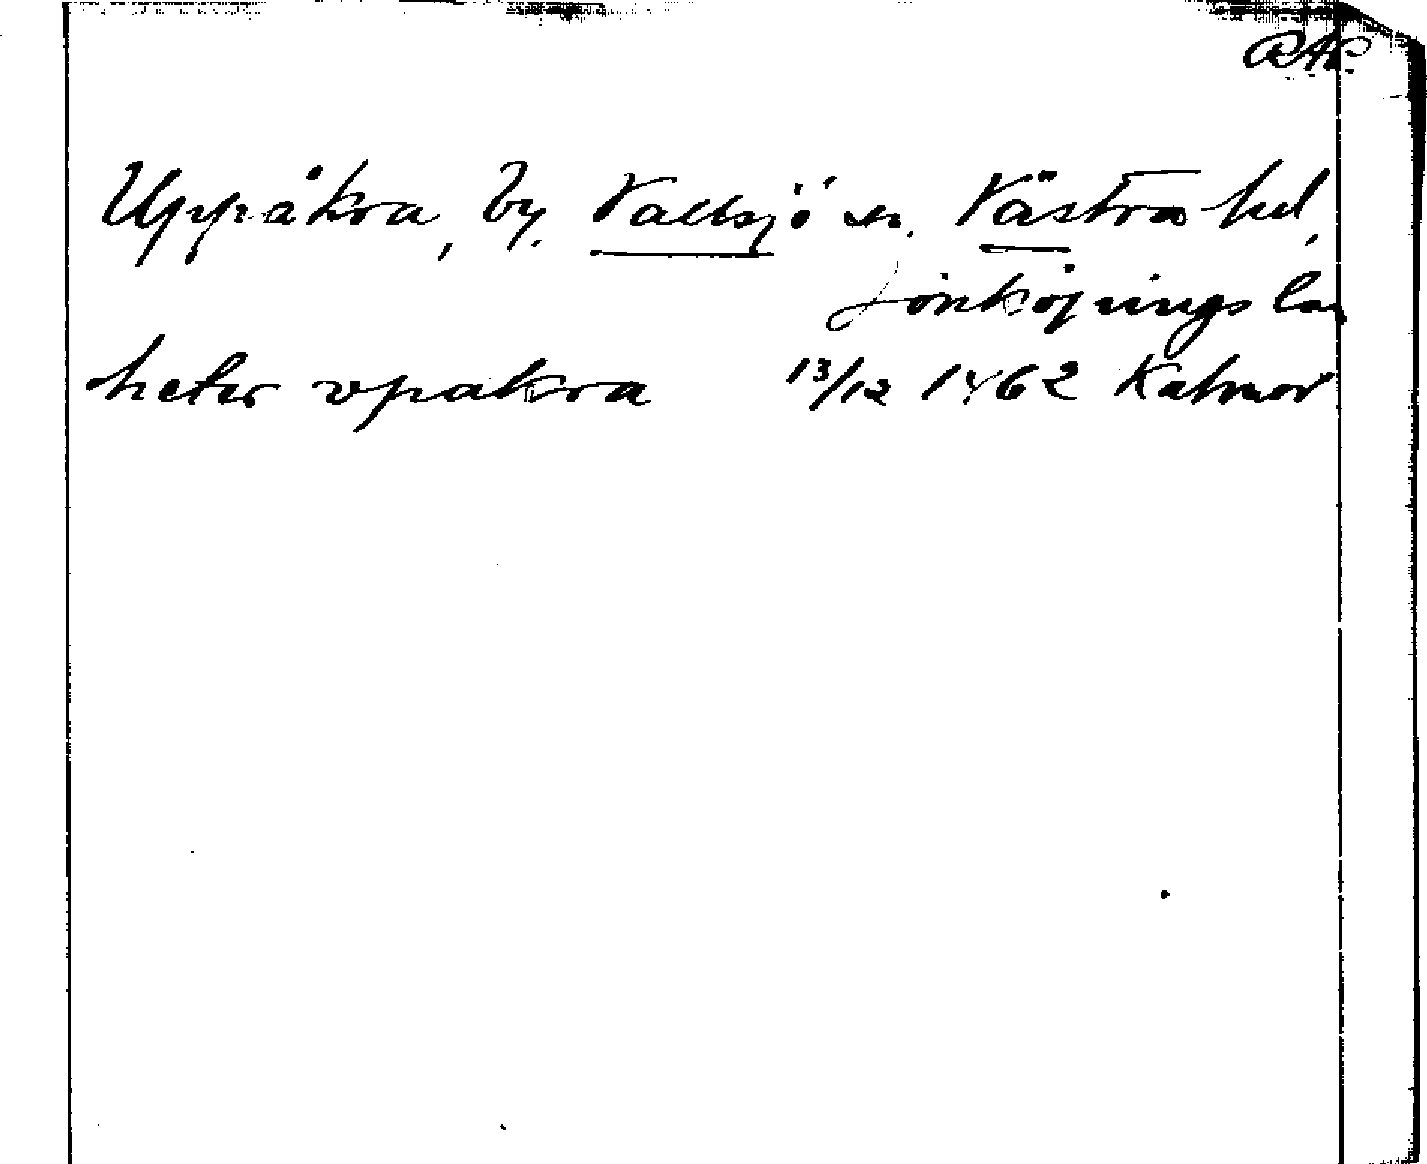 RAP.
Uppåkra, by, Vallsjö sn. Västra hd,
Jönköpings län
heter vpakra 13/12 1462 Kalmar